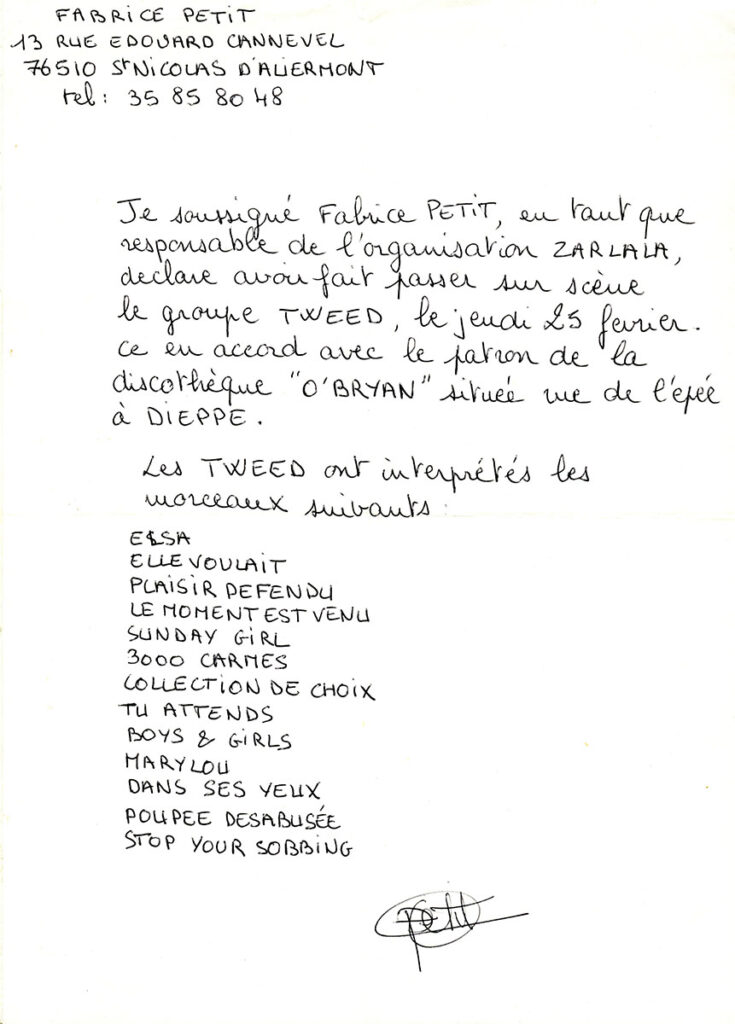 FABRICE PETIT
13 RUE EDOUARD CANNEVEL
76510 St NICOLAS D'ALIERMONT
tel : 35 85 80 48
Je soussigné Fabrice PETIT, en tant que
responsable de l'organisation ZARLALA,
declare avoir fait passer sur scène
le groupe TWEED, le jeudi 25 fevrier.
ce en accord avec le patron de la
discothèque "O'BRYAN" située rue de l'épée
à DIEPPE.
Les TWEED ont interprétés les
morceaux suivants :
ELSA
ELLE VOULAIT
PLAISIR DEFENDU
LE MOMENT EST VENU
SUNDAY GIRL
3000 CARMES
COLLECTION DE CHOIX
TU ATTENDS
BOYS & GIRLS
MARYLOU
DANS SES YEUX
POUPEE DESABUSÉE
STOP YOUR SOBBING
Petit